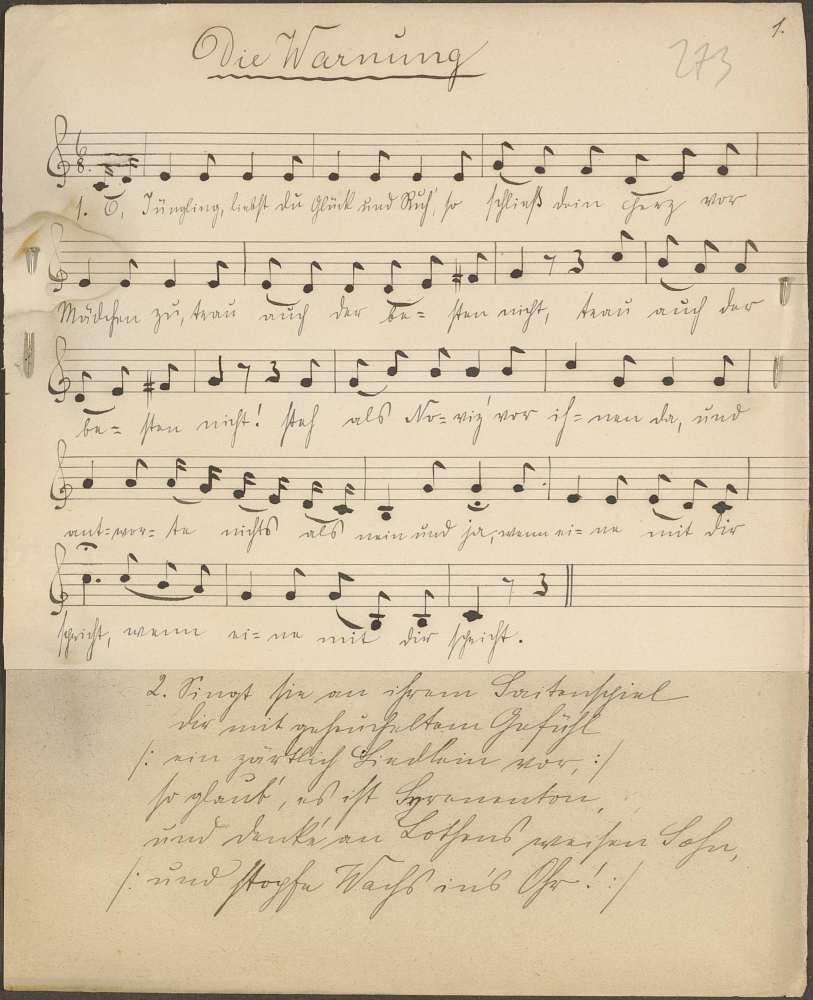 1.
Die Warnung
273
1. O, Jüngling, liebst du Glück und Ruh', so schließ dein Herz vor
Mädchen zu, trau auch der be= sten nicht, trau auch der
be= sten nicht! steh als No=viz' vor ih=nen da, und
ant=wor=te nichts als nein und ja, wenn ei=ne mit dir
spricht, wenn ei=ne mit dir spricht.
2. Singt sie an ihrem Saitenspiel
dir mit geheucheltem Gefühl
/: ein zärtlich Liedlein vor, :/
so glaub', es ist Syrenenton,
und denke an Lothens weisen Sohn,
/: und stopfe Wachs in's Ohr! :/